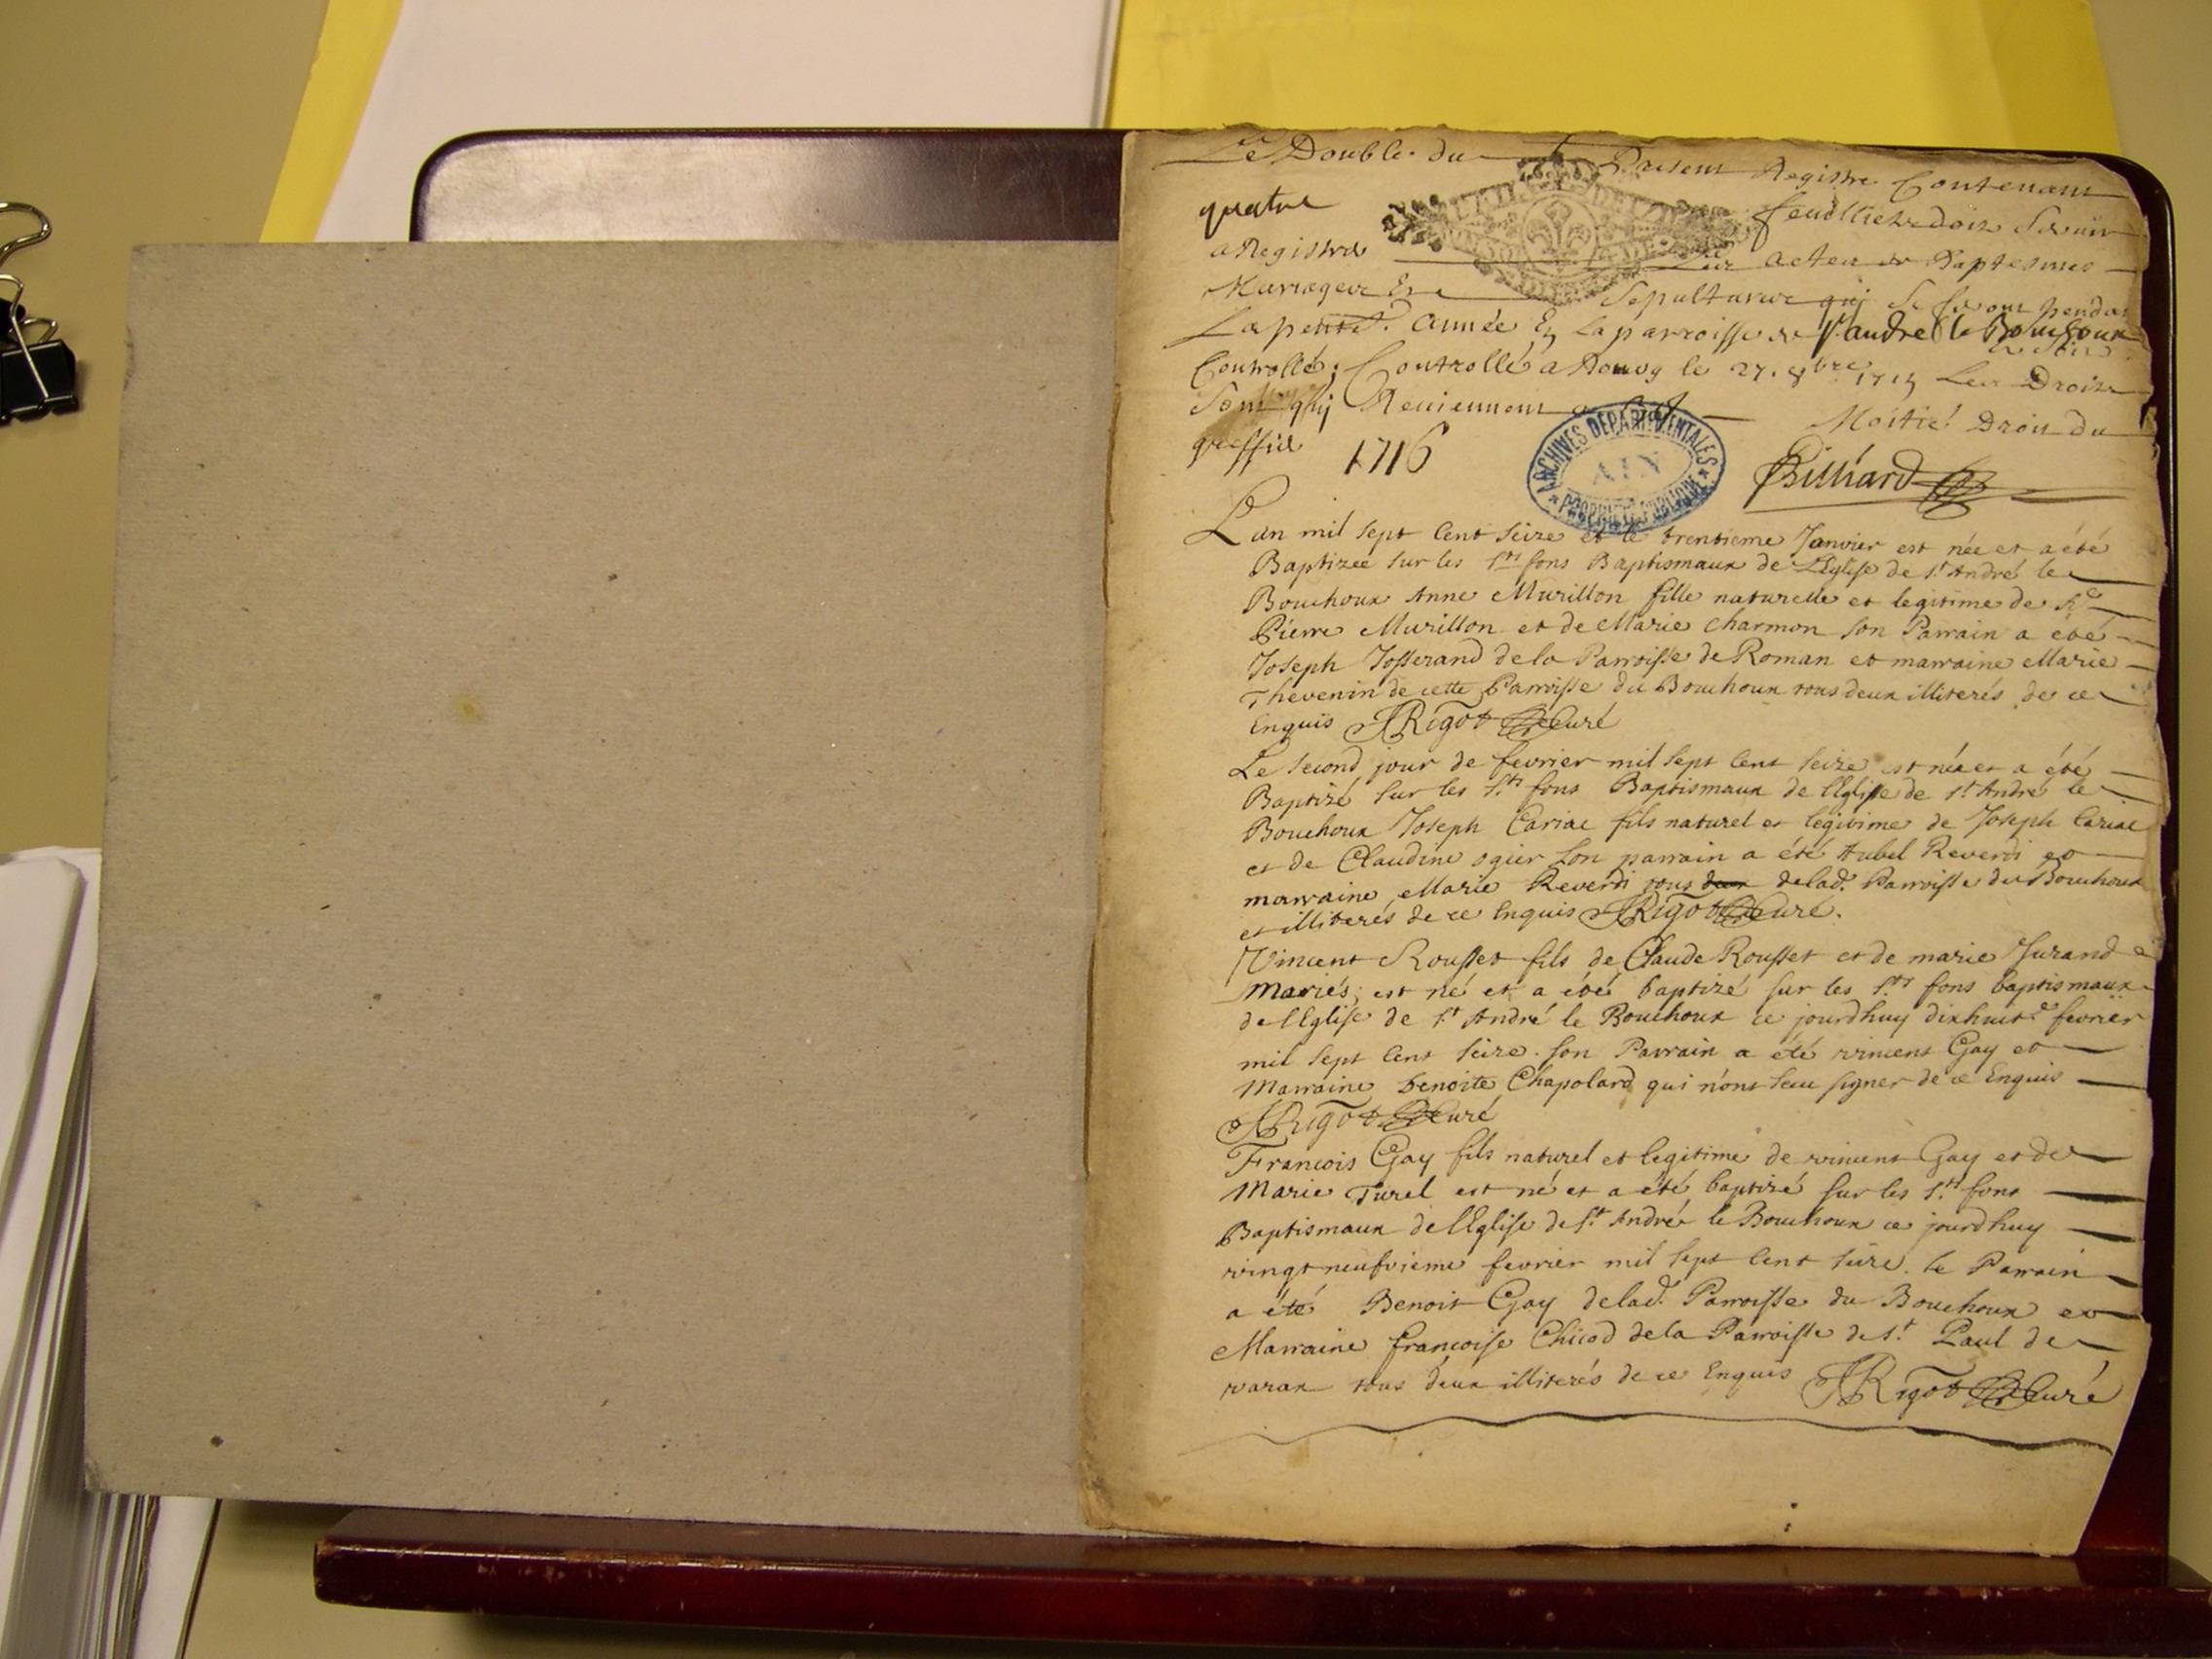 Le Double du Present Registre Contenant
quatre feuilliets doit Servir
a Registrer Les actes de Baptesmes
Mariages Et Sepultures quj Se feront pendant
La petitte année En La parroisse de St andré le Bouchoux
Controllé; Controllé a Bourg le 27. 8bre 1715 Les Droits
Sont quj Reviennent a Moitié Droit du
greffier 1716
Billiard
ARCHIVES DEPARTEMENTALES
AIN
PROPRIETE PUBLIQUE
L'an mil sept cent seize et le trentieme Janvier est née et a été
Baptizée sur les Sts fons Baptismaux de L'Eglise de St André le
Bouchoux Anne Murillon fille naturelle et legitime de
Pierre Murillon et de Marie Charmon son Parrain a été
Joseph Josserand de la Parroisse de Roman et marraine Marie
Thevenin de cette Parroisse du Bouchoux tous deux illiterés de ce
Enquis JRigot Curé
Le second jour de fevrier mil sept cent seize est née et a été
Baptizé sur les Sts fons Baptismaux de l'Eglise de St André le
Bouchoux Joseph Cariac fils naturel et legitime de Joseph Cariac
et de Claudine ogier son parrain a été Aubel Reverdi et
marraine Marie Reverdi tous deux delad. Parroisse du Bouchoux
et illiterés de ce Enquis JRigot Curé.
Vincent Rousset fils de Claude Rousset et de marie Jurand
mariés; est né et a été baptizé sur les Sts fons baptismaux
de l'Eglise de St André le Bouchoux ce jourdhuy dixhuite fevrier
mil sept cent seize. son Parrain a été vincent Gay et
Marraine benoite Chapolard qui n'ont sceu signer de ce Enquis
JRigot Curé
Francois Gay fils naturel et legitime de vincent Gay et de
Marie Turel est né et a été baptizé sur les Sts fons
Baptismaux de l'Eglise de St André le Bouchoux ce jourdhuy
vingt neufvieme fevrier mil sept cent seize. le Parrain
a été Benoit Gay delad. Parroisse du Bouchoux et
Marraine francoise Chicod de la Parroisse de St Paul de
varax tous deux illiterés de ce Enquis JRigot Curé